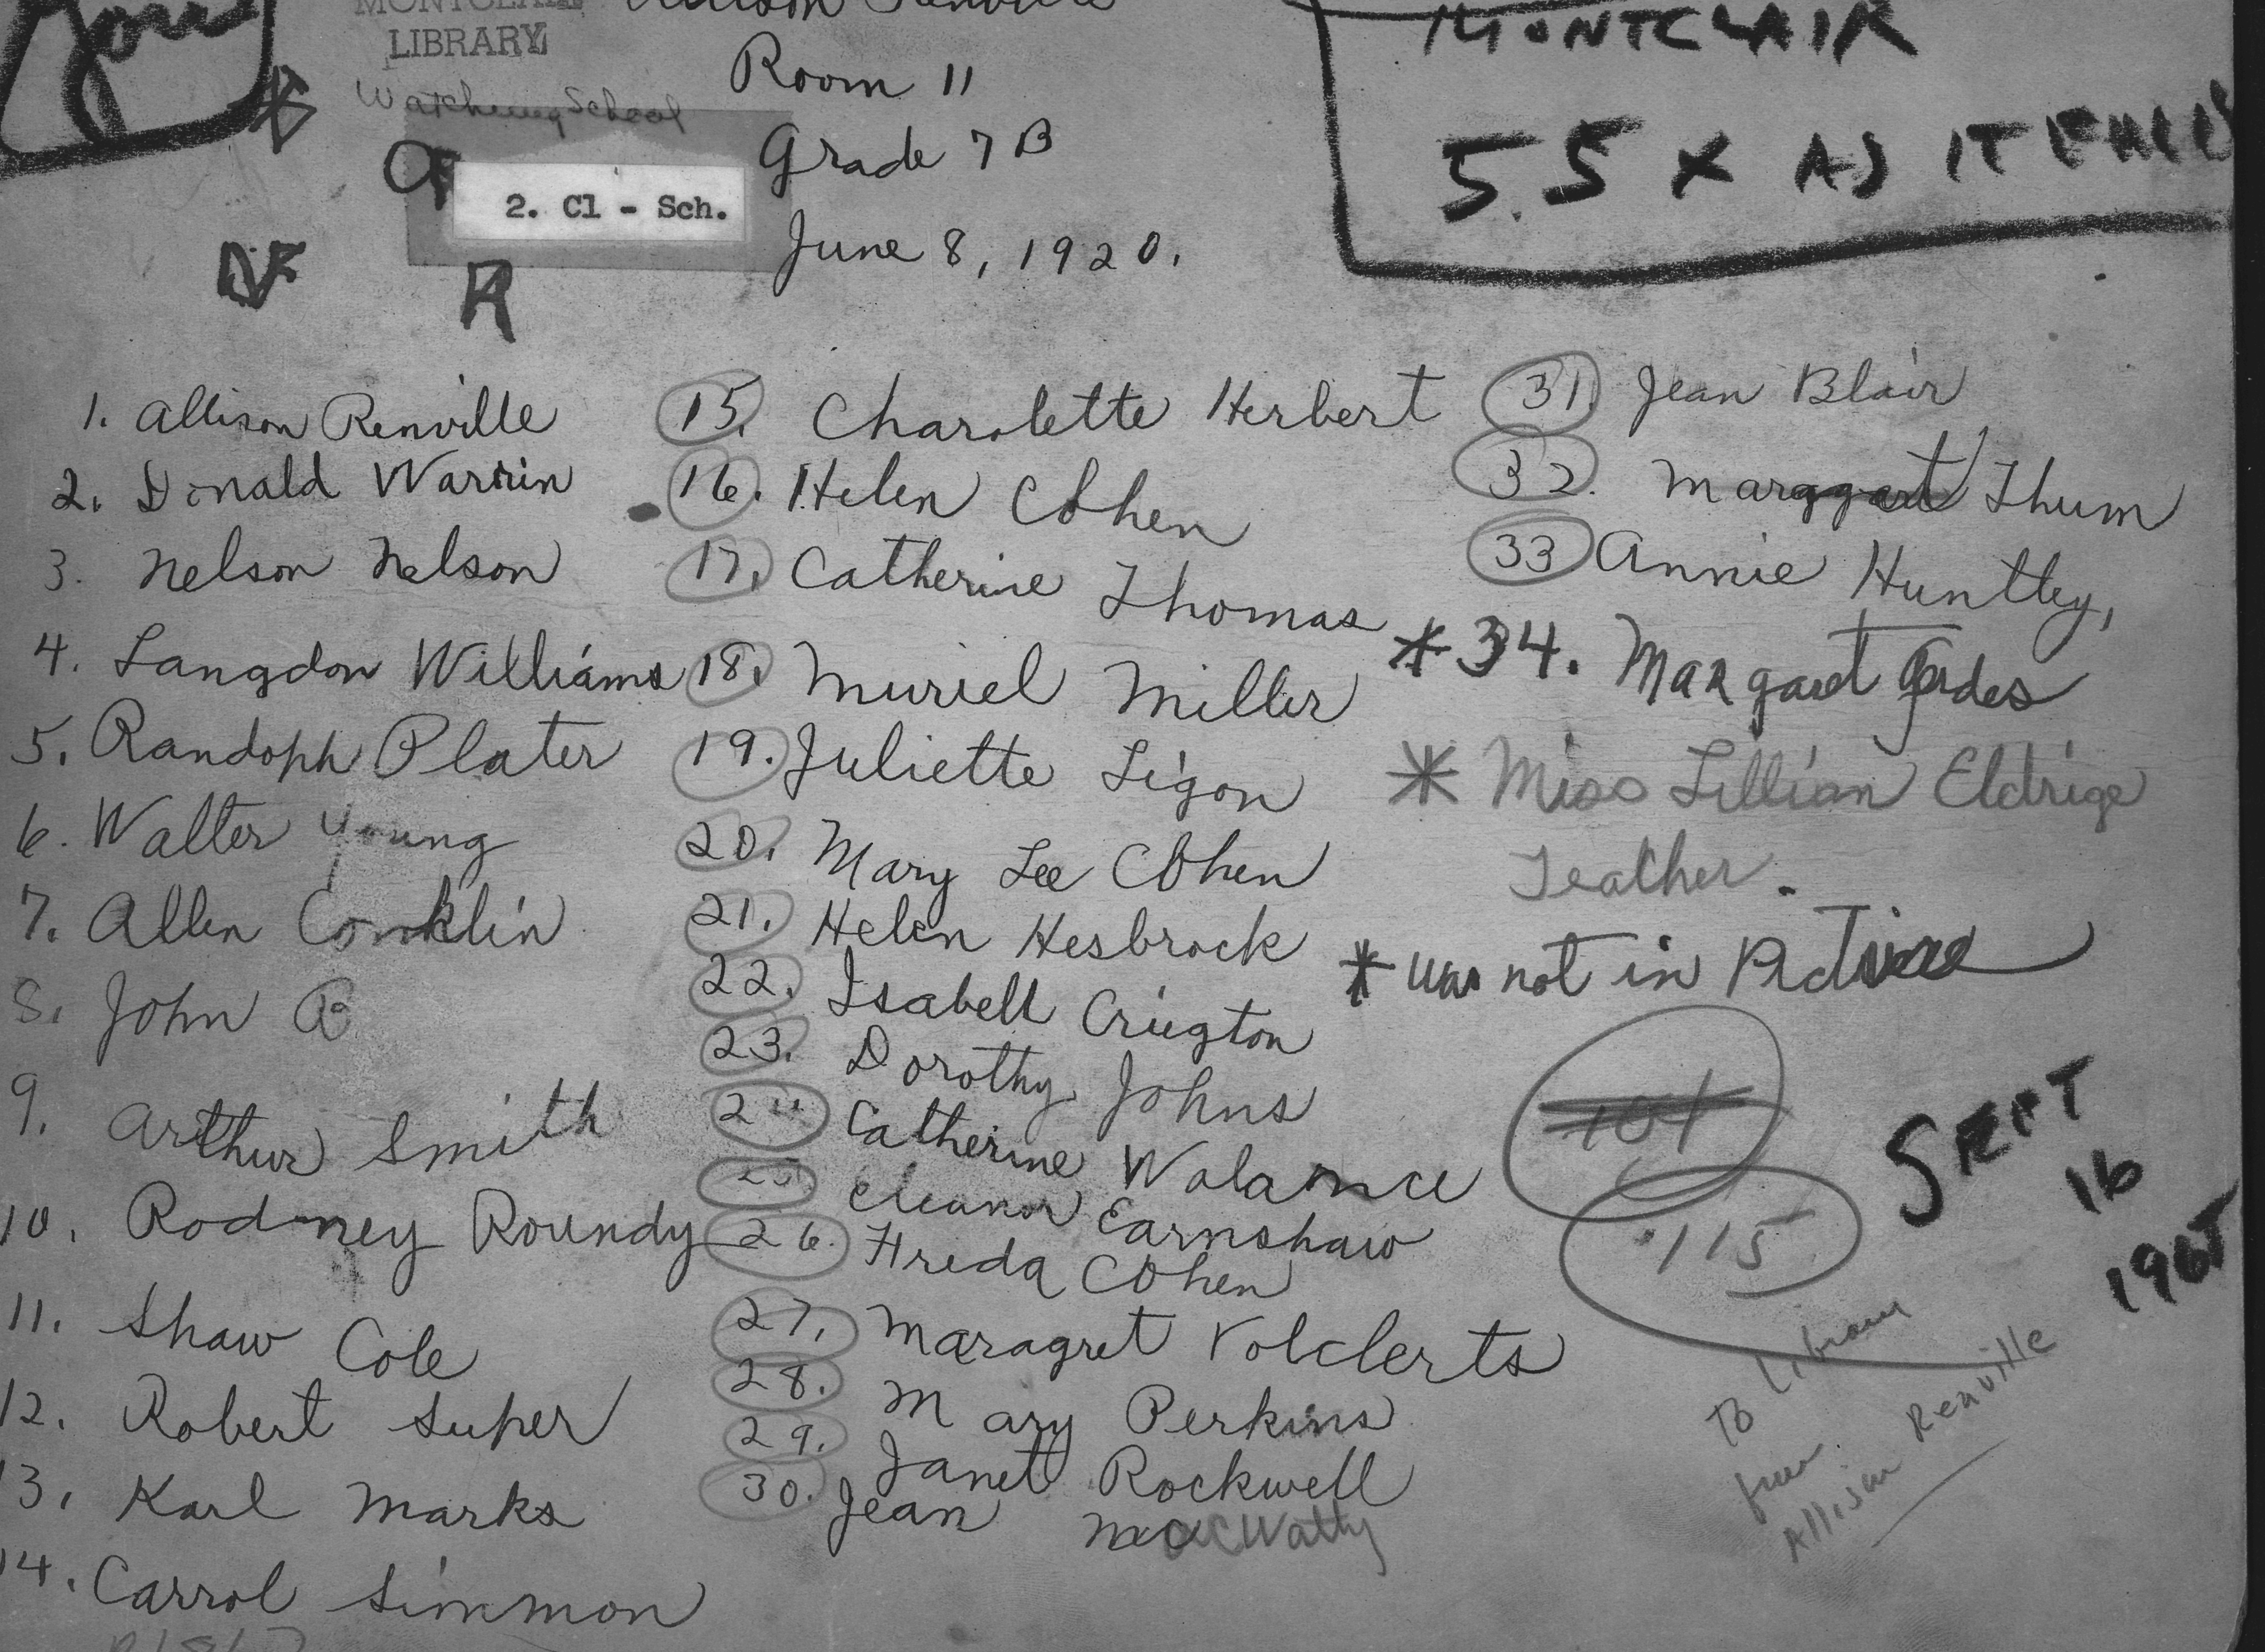 MONTCLAIR
LIBRARY
Watchung School
Allison Renville
Room 11
Grade 7B
June 8, 1920.
2. Cl - Sch.
MONTCLAIR
5.5 X AS IT FALLS
1. Allison Renville
2. Donald Warrin
3. Nelson Nelson
4. Langdon Williams
5. Randoph Plater
6. Walter Young
7. Allen Conklin
8. John B
9. Arthur Smith
10. Rodney Roundy
11. Shaw Cole
12. Robert Super
13. Karl Marks
14. Carrol Simmon
15. Charolette Herbert
16. Helen Cohen
17. Catherine Thomas
18. Muriel Miller
19. Juliette Ligon
20. Mary Lee Cohen
21. Helen Hesbrock
22. Isabell Criegton
23. Dorothy Johns
24 Catherine Walance
25. Eleanor Earnshaw
26. Freda Cohen
27. Maragret Volclerts
28. Mary Perkins
29. Janet Rockwell
30. Jean
31. Jean Blair
32. Marggart Thum
33 Annie Huntley,
* 34. Margaret
* Miss Lillian Eldrige
Teather.
* was not in Picture
104
115
SEPT
16
To Library
from
Allison Renville